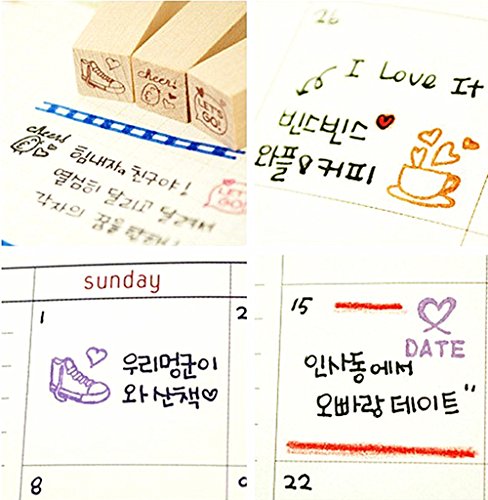 cheer!
LET'S GO!
cheer!
힘내자, 친구야!
열심히 달리고 달려서
각자의 꿈을
LET'S GO!
26
I Love It
빈스빈스
와플 & 커피
sunday
1
2
우리멍균이
와 산책♡
8
15
DATE
인사동에서
오빠랑 데이트"
22